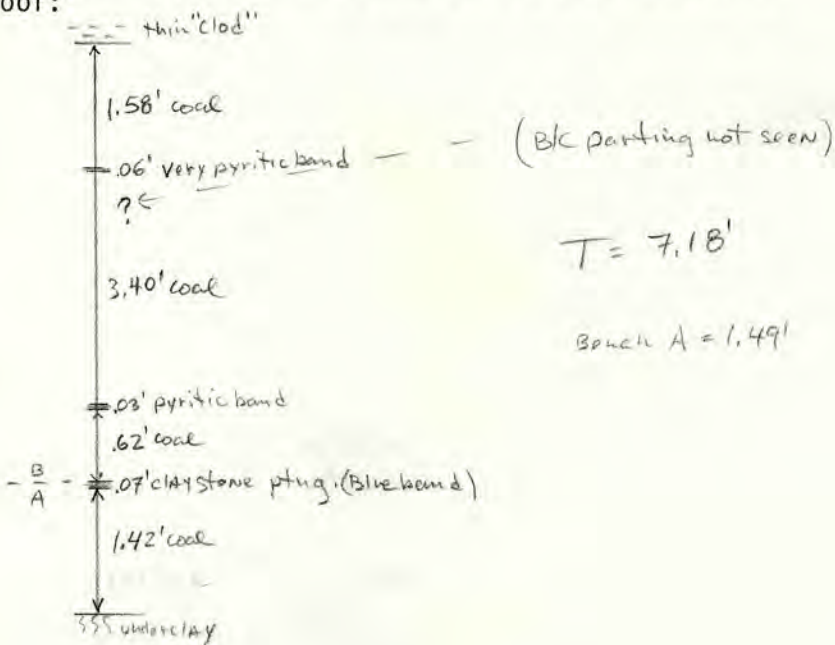 thin "clod"
1.58' coal
.06' very pyritic band
(B/C parting not seen)
?
3.40' coal
T = 7.18'
Bench A = 1.49'
.03' pyritic band
.62' coal
B
A
.07' claystone ptng. (Blue band)
1.42' coal
underclay